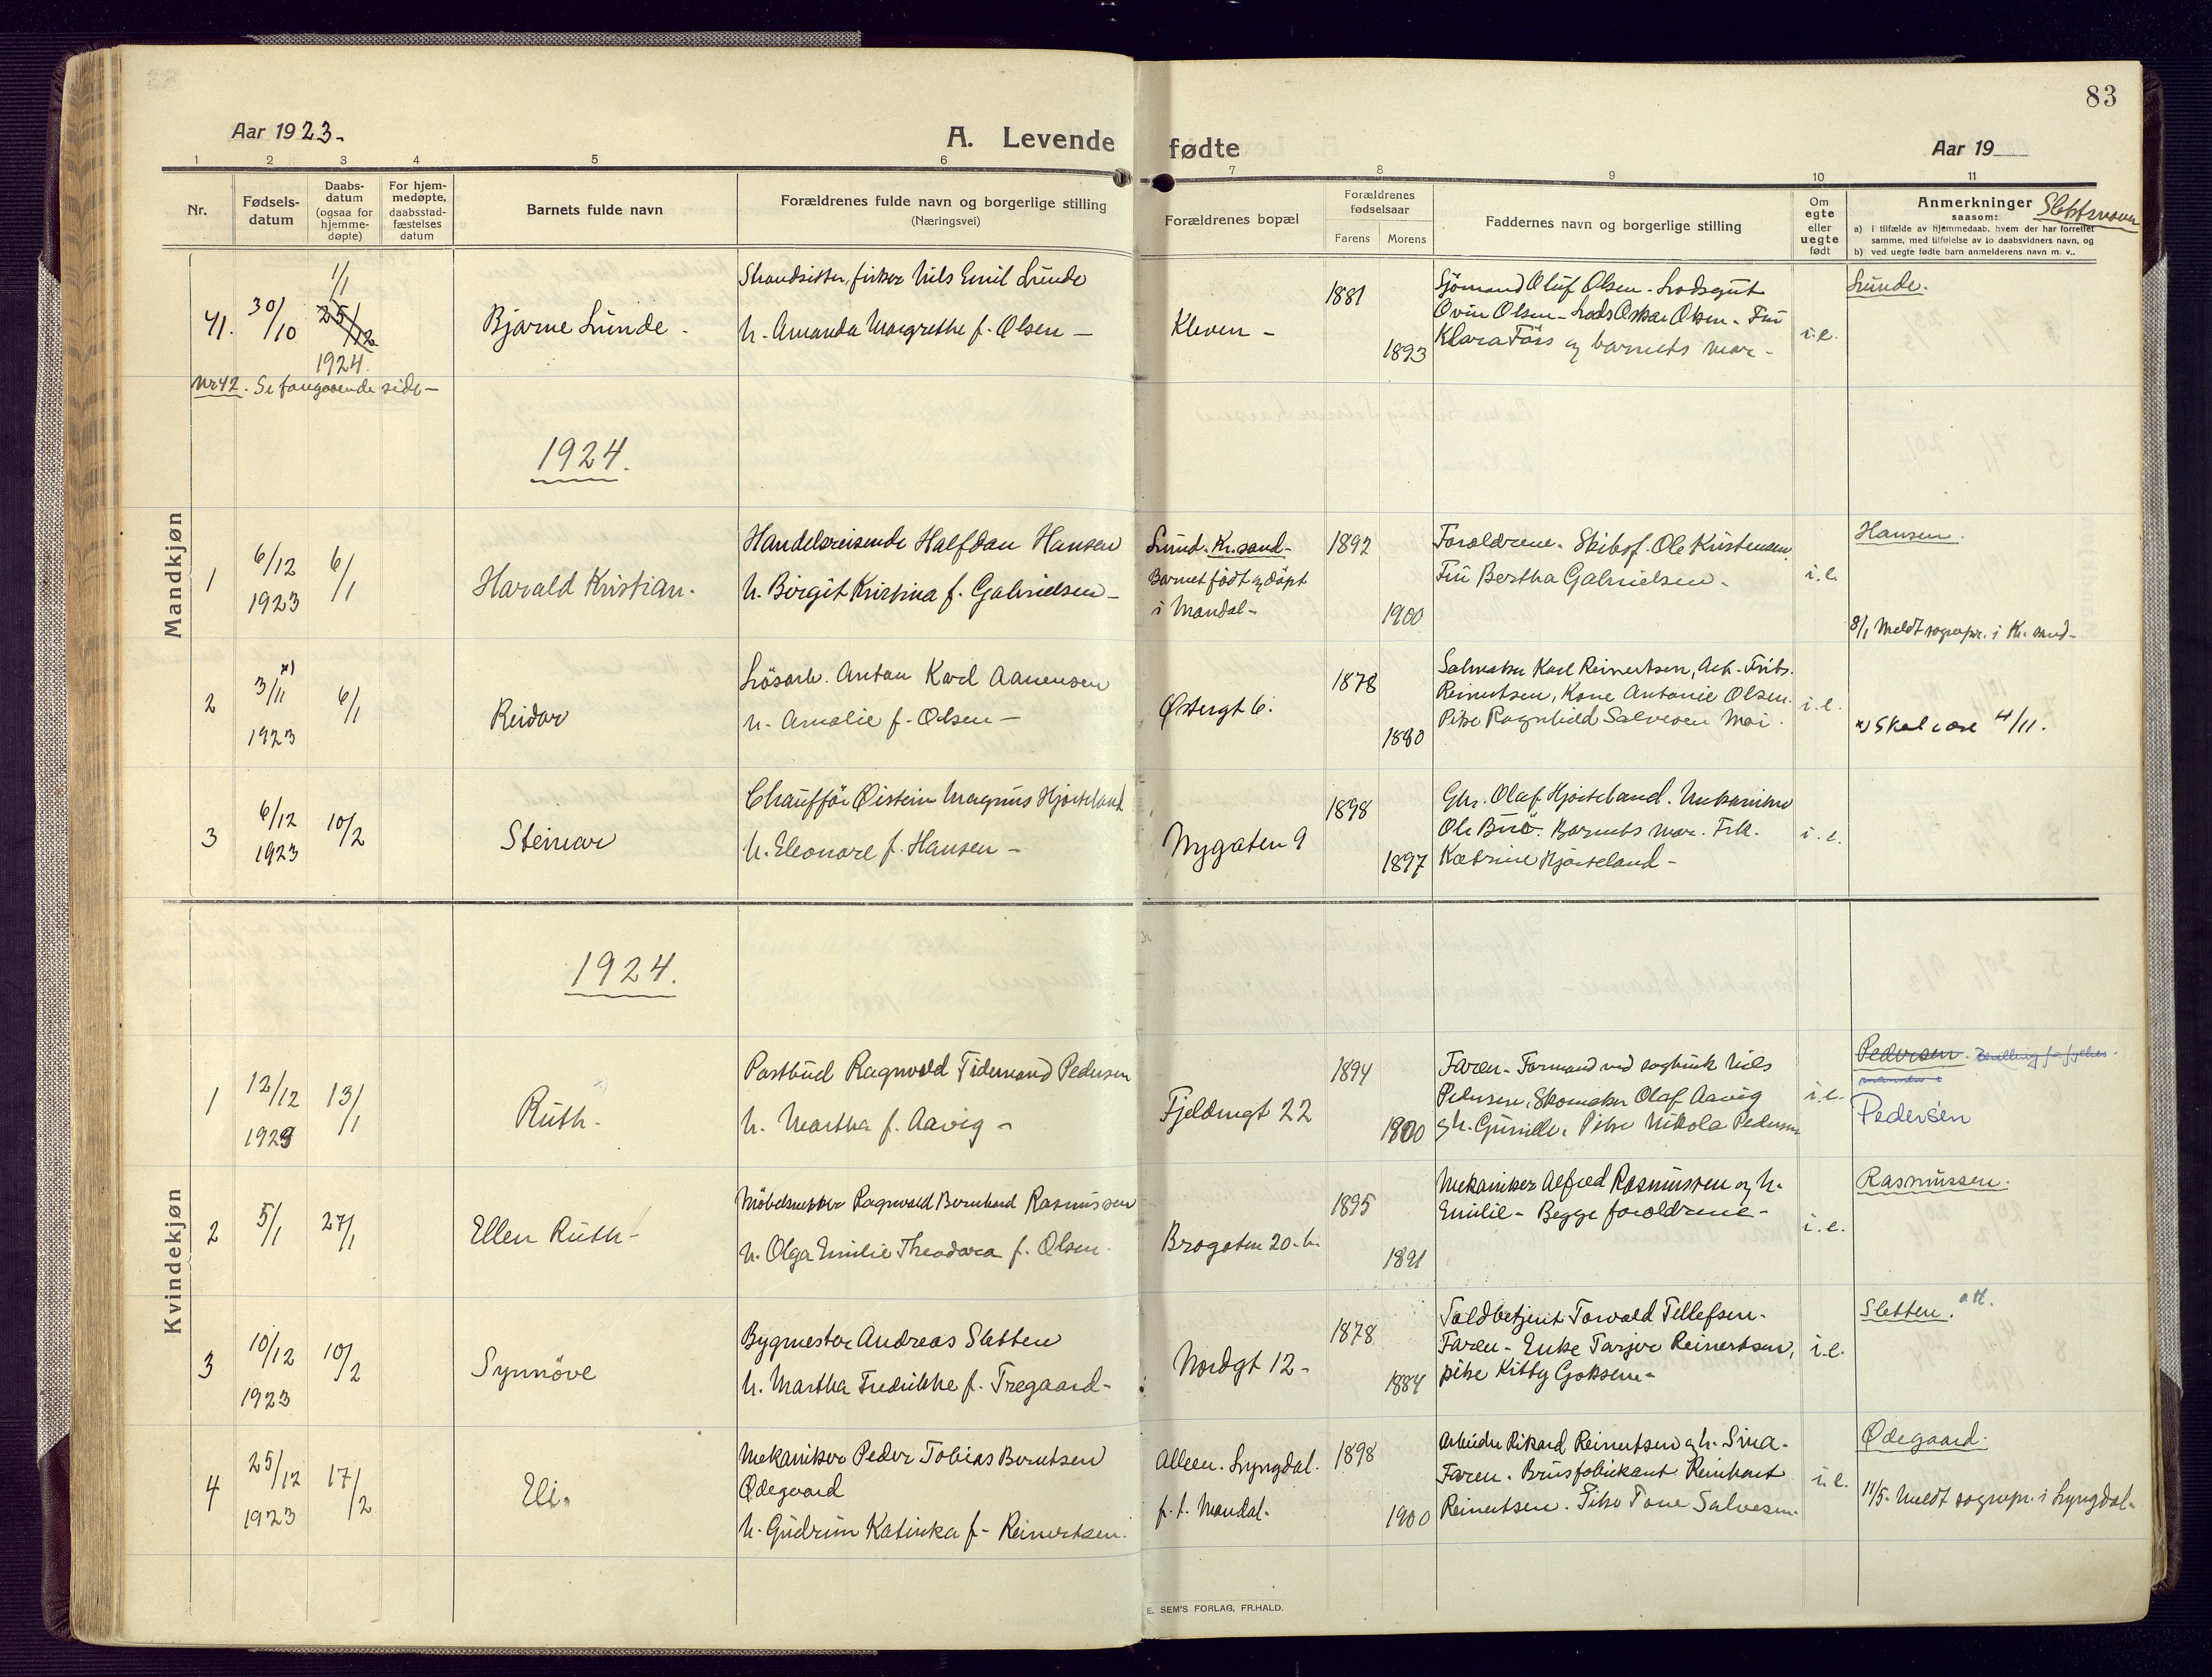 83
Aar 1923.
A. Levende fødte
Aar 19
1 2 3 4 5 6 7 8 9 10 11
Nr.
Fødsels-
datum
Daabs-
datum
(ogsaa for
hjemme-
døpte)
For hjem-
medøpte,
daabsstad-
fæstelses
datum
Barnets fulde navn
Forældrenes fulde navn og borgerlige stilling
(Næringsvei)
Forældrenes bopæl
Forældrenes
fødselsaar
Farens Morens
Faddernes navn og borgerlige stilling
Om
egte
eller
uegte
født
Anmerkninger
saasom:
a) I tilfælde av hjemmedaab, hvem der har forrettet
samme, med tilføielse av to daabsvidners navn, og
b) ved uegte fødte barn anmelderens navn m. v..
Mandkjøn
41.
30/10
1/1
25/12
1924.
Bjarne Lunde -
Strandsitter, fisker Nils Emil Lunde
h. Amanda Margrethe f. Olsen -
Kleven -
1881
1893
Sjömand Oluf Olsen - Lodsgut
Övin Olsen - Lods Oskar Olsen - Fru
Klara Foss og barnets mor -
i.e.
Lunde.
Nr 42. Se foregaaende side -
1924.
1
6/12
1923
6/1
Harald Kristian.
Handelsreisende Halfdan Hansen
h. Birgit Kristina f. Gabrielsen -
Lund. Kr.sand-
Barnet födt og döpt
i Mandal -
1892
1900
Forældrene. Skibsf. Ole Kristensen
Fru Bertha Gabrielsen -
i.e.
Hansen.
8/1 Meldt sognepr. i Kr. sand -
2
3/11 x)
1923
6/1
Reidar
Lösarb. Anton Karl Aanensen
h. Amalie f. Olsen -
Østergt 6.
1878
1880
Salmaker Karl Reinertsen, Arb. Frits
Reinertsen, Kone Antonie Olsen.
Pike Ragnhild Salvesen Moi.
i.e.
x) Skal være 4/11.
3
6/12
1923
10/2
Steinar
Chaufför Øistein Magnus Hjorteland
h. Eleonore f. Hansen -
Nygaten 9
1898
1897
Gbr. Olaf Hjorteland. Mekaniker
Ole Barnets mor. Frk.
Katrine Hjorteland -
i.e.
Kvindekjøn
1924.
1
12/12
1923
13/1
Ruth -
Postbud Ragnvald Tidemand Pedersen
h. Martha f. Aavig -
Fjeldnygt 22
1894
1900
Faren - Formand ved sagbruk Nils
Pedersen, Skomaker Olaf Aavig
og h. Gunille. Pike Nikola Pedersen
i.e.
Pedersen.
Pedersen
2
5/1
27/1
Ellen Ruth -
Möbelsnekker Ragnvald Bernhard Rasmussen
h. Olga Emilie Theodora f. Olsen.
Brogaten 20. b.
1895
1891
Mekaniker Alfred Rasmussen og h.
Emilie - Begge foreldrene -
i.e.
Rasmussen.
3
10/12
1923
10/2
Synnöve
Bygmester Andreas Sletten
h. Martha Fredrikke f. Tregaard -
Nordgt 12 -
1878
1884
Toldbetjent Torvald Tellefsen -
Faren - Enke Tarjer Reinertsen,
pike Kitty Goksem -
i.e.
Sletten.
4
25/12
1923
17/2
Eli.
Mekaniker Peder Tobias Berntsen
Ødegaard
h. Gudrun Katinka f. Reinertsen.
Alleen. Lyngdal.
f. t. Mandal.
1898
1900
Arbeider Rikard Reinertsen og h. Sina -
Faren. Brusfabrikant Reinhart
Reinertsen. Pike Tone Salvesen -
i.e.
Ødegaard.
11/5. Meldt sognepr. i Lyngdal.
E. SEM'S FORLAG, FR.HALD.